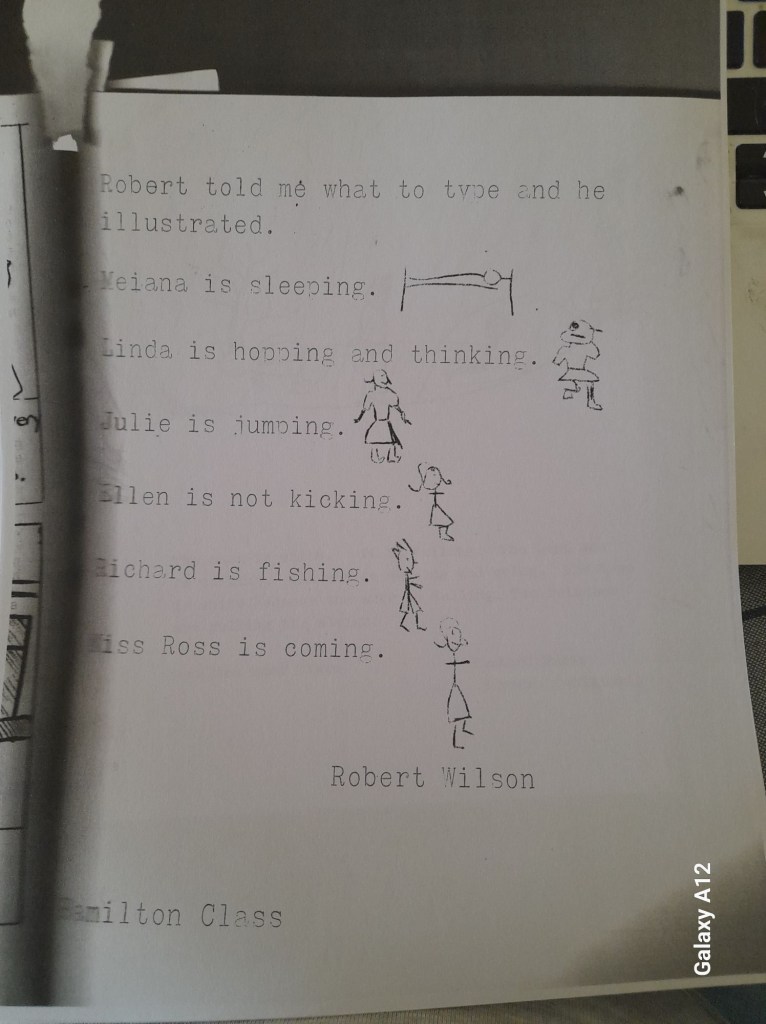 Robert told me what to type and he
illustrated.
Meiana is sleeping.
Linda is hopping and thinking.
Julie is jumping.
Ellen is not kicking.
Richard is fishing.
Miss Ross is coming.
Robert Wilson
Hamilton Class
Galaxy A12